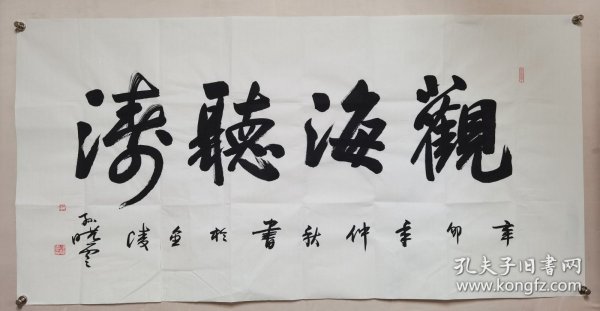 觀海聽涛
辛卯年仲秋書於金陵
孙晓雲
孔夫子旧书网
www.kongfz.com